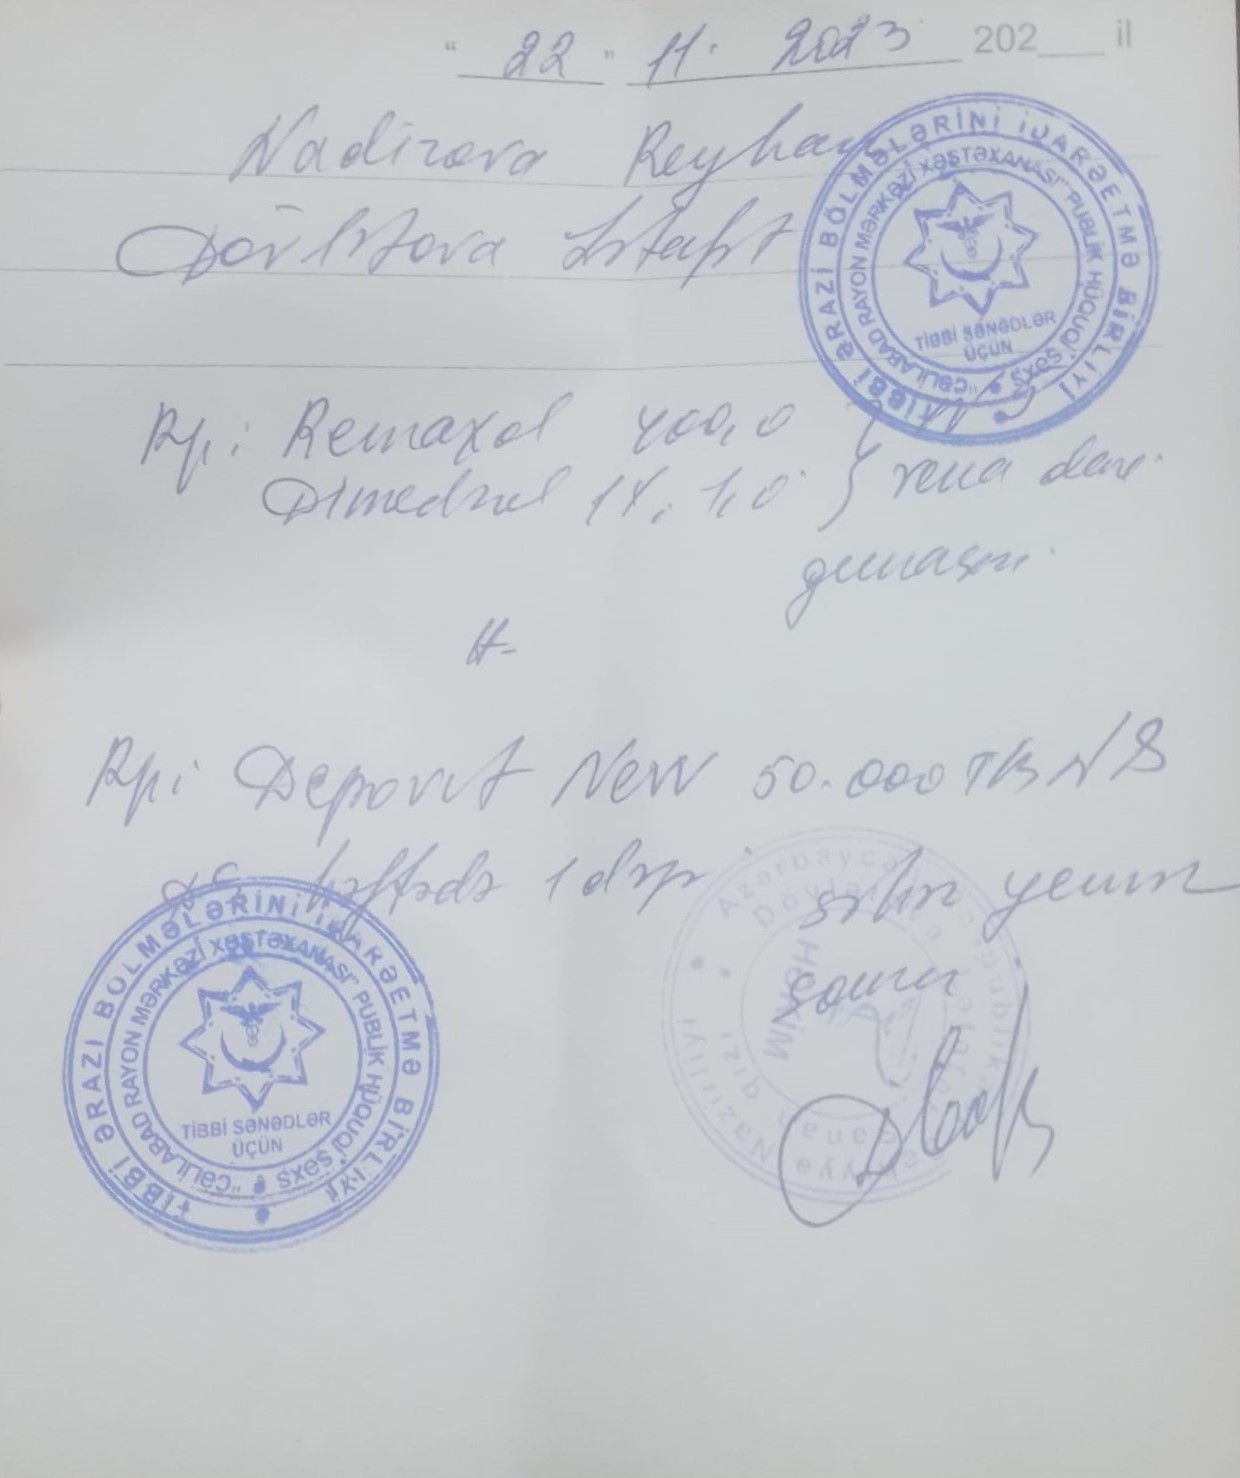 " 22 " 11. 2023 202___ il
Nadirova Reyhan
Dövlətova
Rp: Remaxol 400,0
Dimedrol 1%, 1,0 } vena daxi
gunaşırı
#-
Rp: Depovit New 50.000 TB N8
DS. həftədə 1 dəfə səhər yemək
sonra
TİBBİ ƏRAZİ BÖLMƏLƏRİNİ İDARƏETMƏ BİRLİYİ
"CƏLİLABAD RAYON MƏRKƏZİ XƏSTƏXANASI" PUBLİK HÜQUQİ ŞƏXS
TİBBİ SƏNƏDLƏR
ÜÇÜN
TİBBİ ƏRAZİ BÖLMƏLƏRİNİ İDARƏETMƏ BİRLİYİ
"CƏLİLABAD RAYON MƏRKƏZİ XƏSTƏXANASI" PUBLİK HÜQUQİ ŞƏXS
TİBBİ SƏNƏDLƏR
ÜÇÜN
HƏKİM